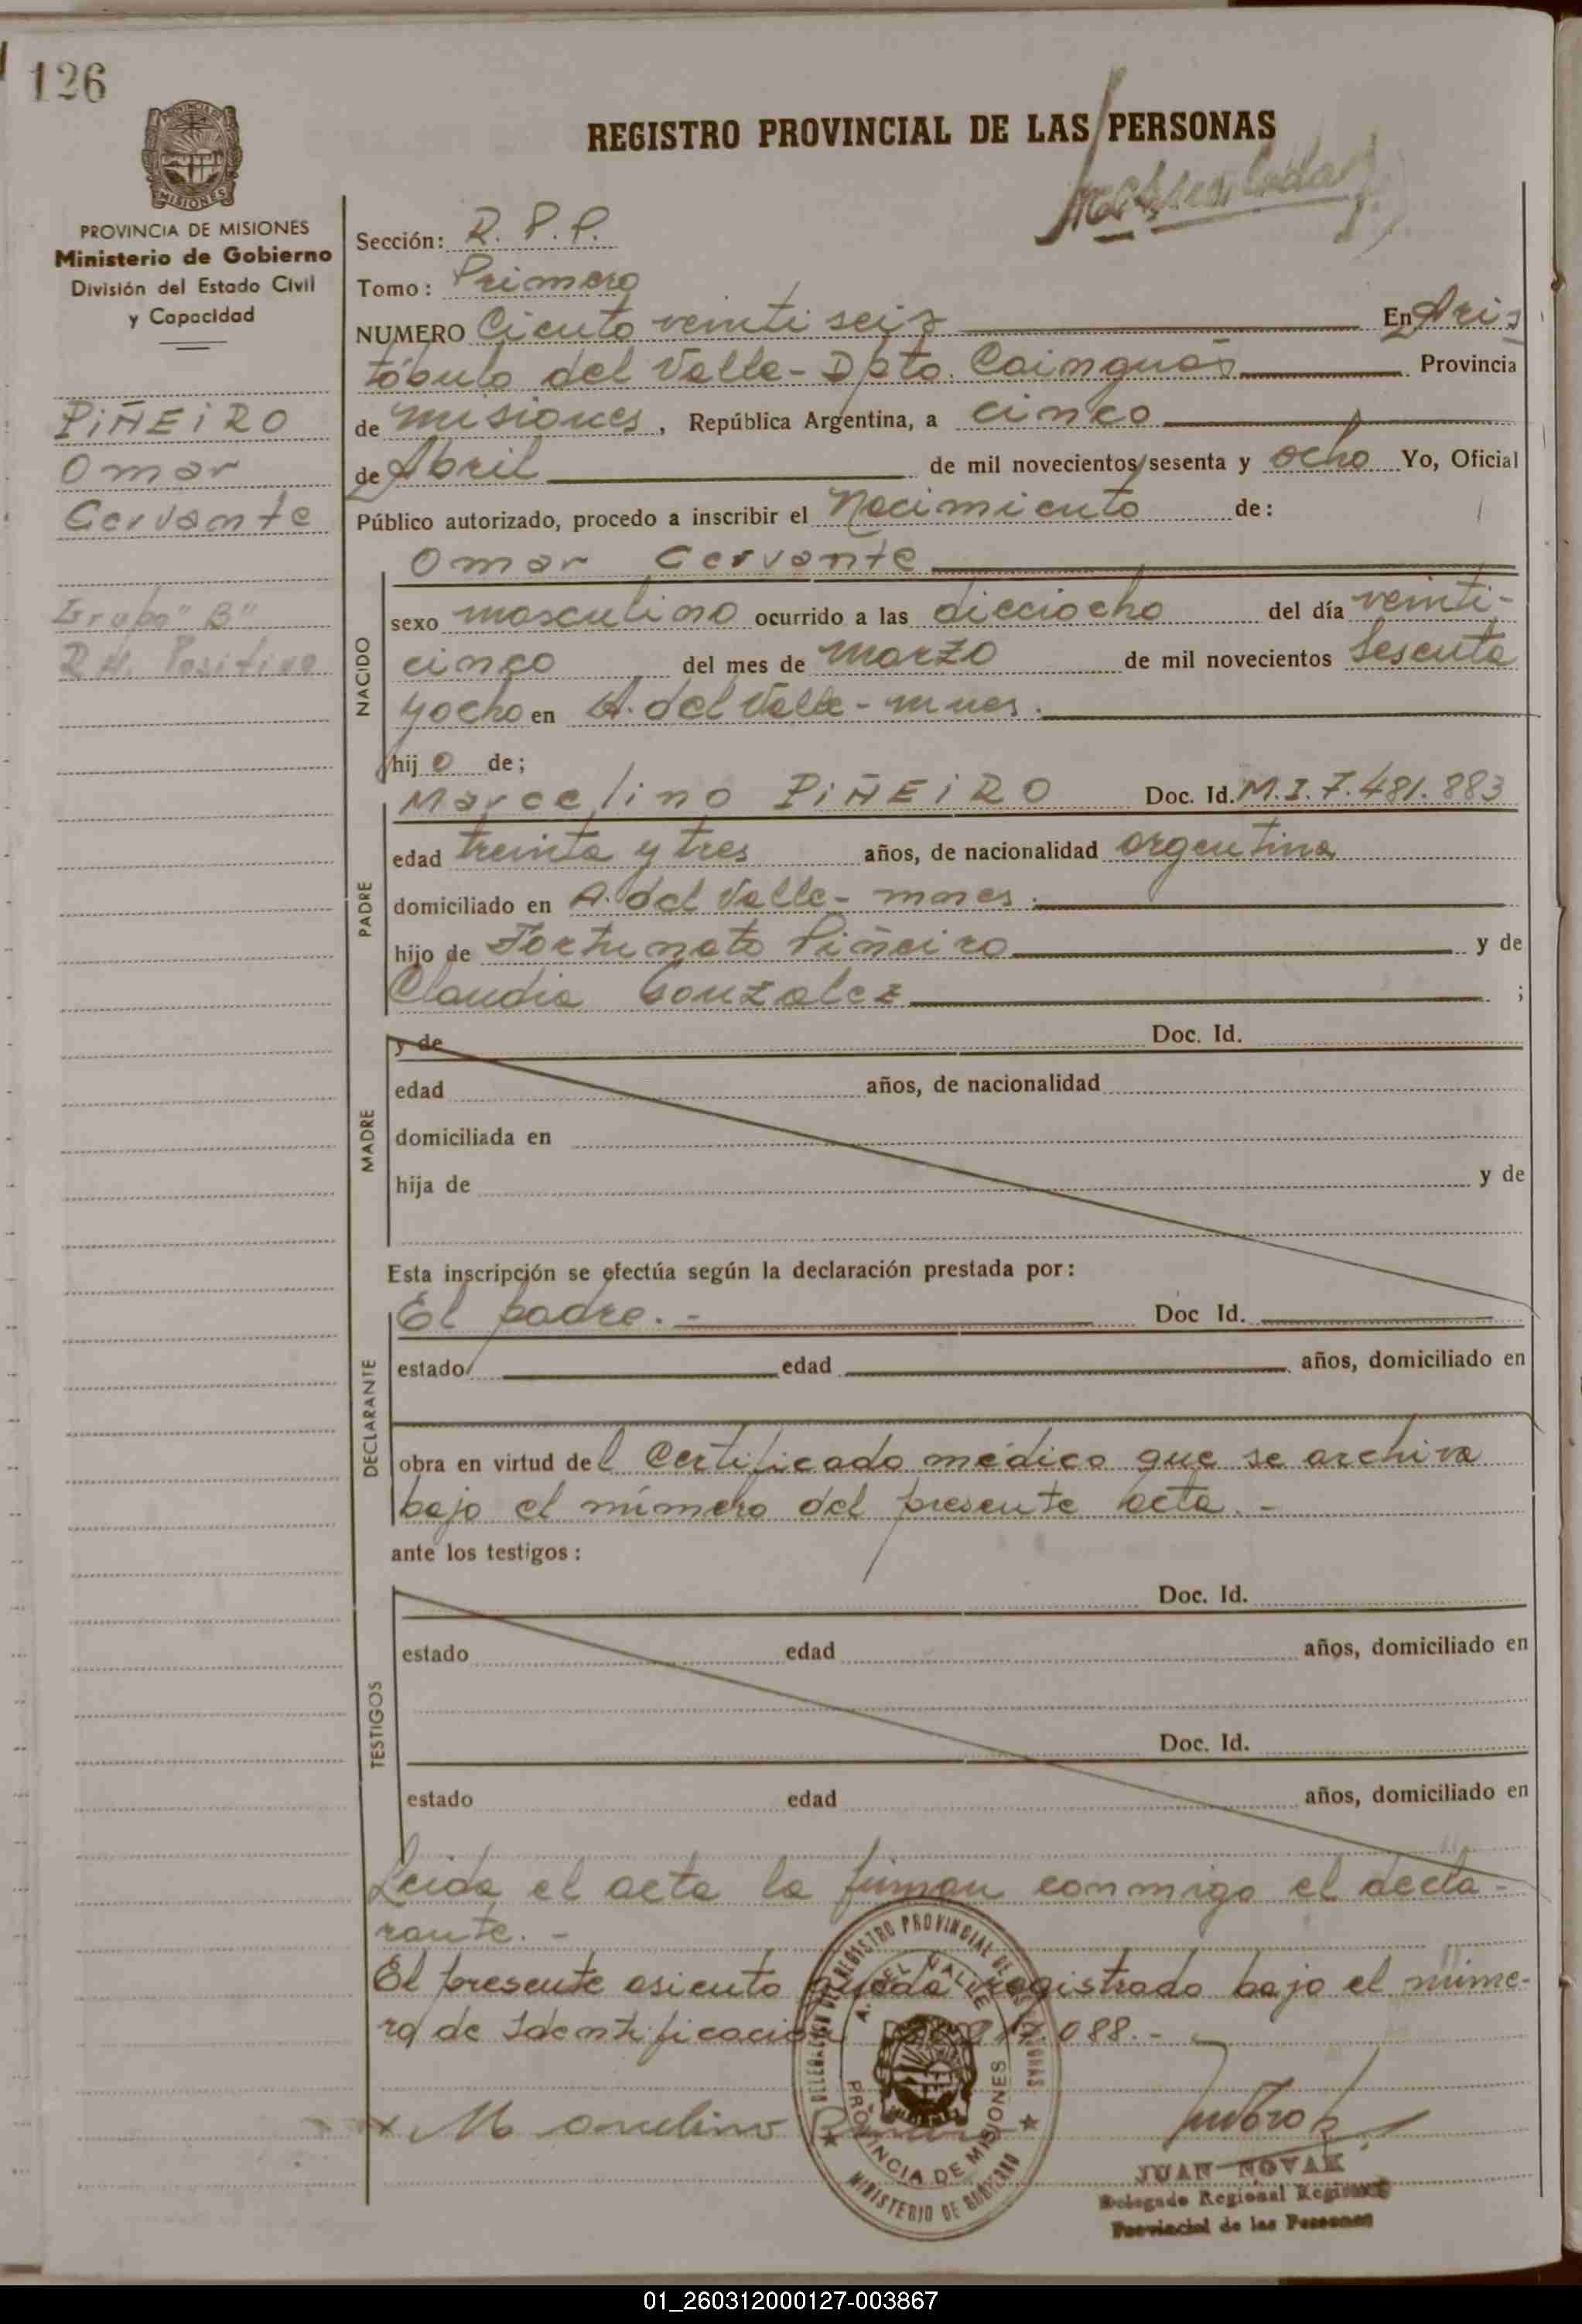 126
REGISTRO PROVINCIAL DE LAS PERSONAS
PROVINCIA DE MISIONES
Ministerio de Gobierno
División del Estado Civil
y Capacidad
PIÑEIRO
Omar
Cervante
Grupo "B"
RH. Positivo
Sección: R. P. P.
Tomo: Primero
NUMERO Ciento veinti seis En Aris
tóbulo del Valle - Dpto. Cainguás Provincia
de Misiones, República Argentina, a cinco
de Abril de mil novecientos sesenta y ocho Yo, Oficial
Público autorizado, procedo a inscribir el Nacimiento de:
Omar Cervante
NACIDO
sexo masculino ocurrido a las dieciocho del día veinti-
cinco del mes de Marzo de mil novecientos Sesenta
y ocho en A. del Valle - mnes.
hijo de;
Marcelino PIÑEIRO Doc. Id. M.I. 7.481.883
PADRE
edad treinta y tres años, de nacionalidad argentina
domiciliado en A. del Valle - mnes.
hijo de Fortunato Piñeiro y de
Claudia Gonzalez ;
MADRE
y de Doc. Id.
edad años, de nacionalidad
domiciliada en
hija de y de
Esta inscripción se efectúa según la declaración prestada por:
El padre. - Doc Id.
DECLARANTE
estado edad años, domiciliado en
obra en virtud del Certificado médico que se archiva
bajo el número del presente acta. -
ante los testigos:
TESTIGOS
Doc. Id.
estado edad años, domiciliado en
Doc. Id.
estado edad años, domiciliado en
Leida el acta la firman conmigo el decla-
rante. -
El presente asiento queda registrado bajo el núme-
ro de Identificación 088. -
DELEGACION DEL REGISTRO PROVINCIAL DE LAS PERSONAS
A. DEL VALLE
PROVINCIA DE MISIONES
MINISTERIO DE GOBIERNO
x Marcelino
JUAN NOVAK
Delegado Regional Registro
Provincial de las Personas
01_260312000127-003867